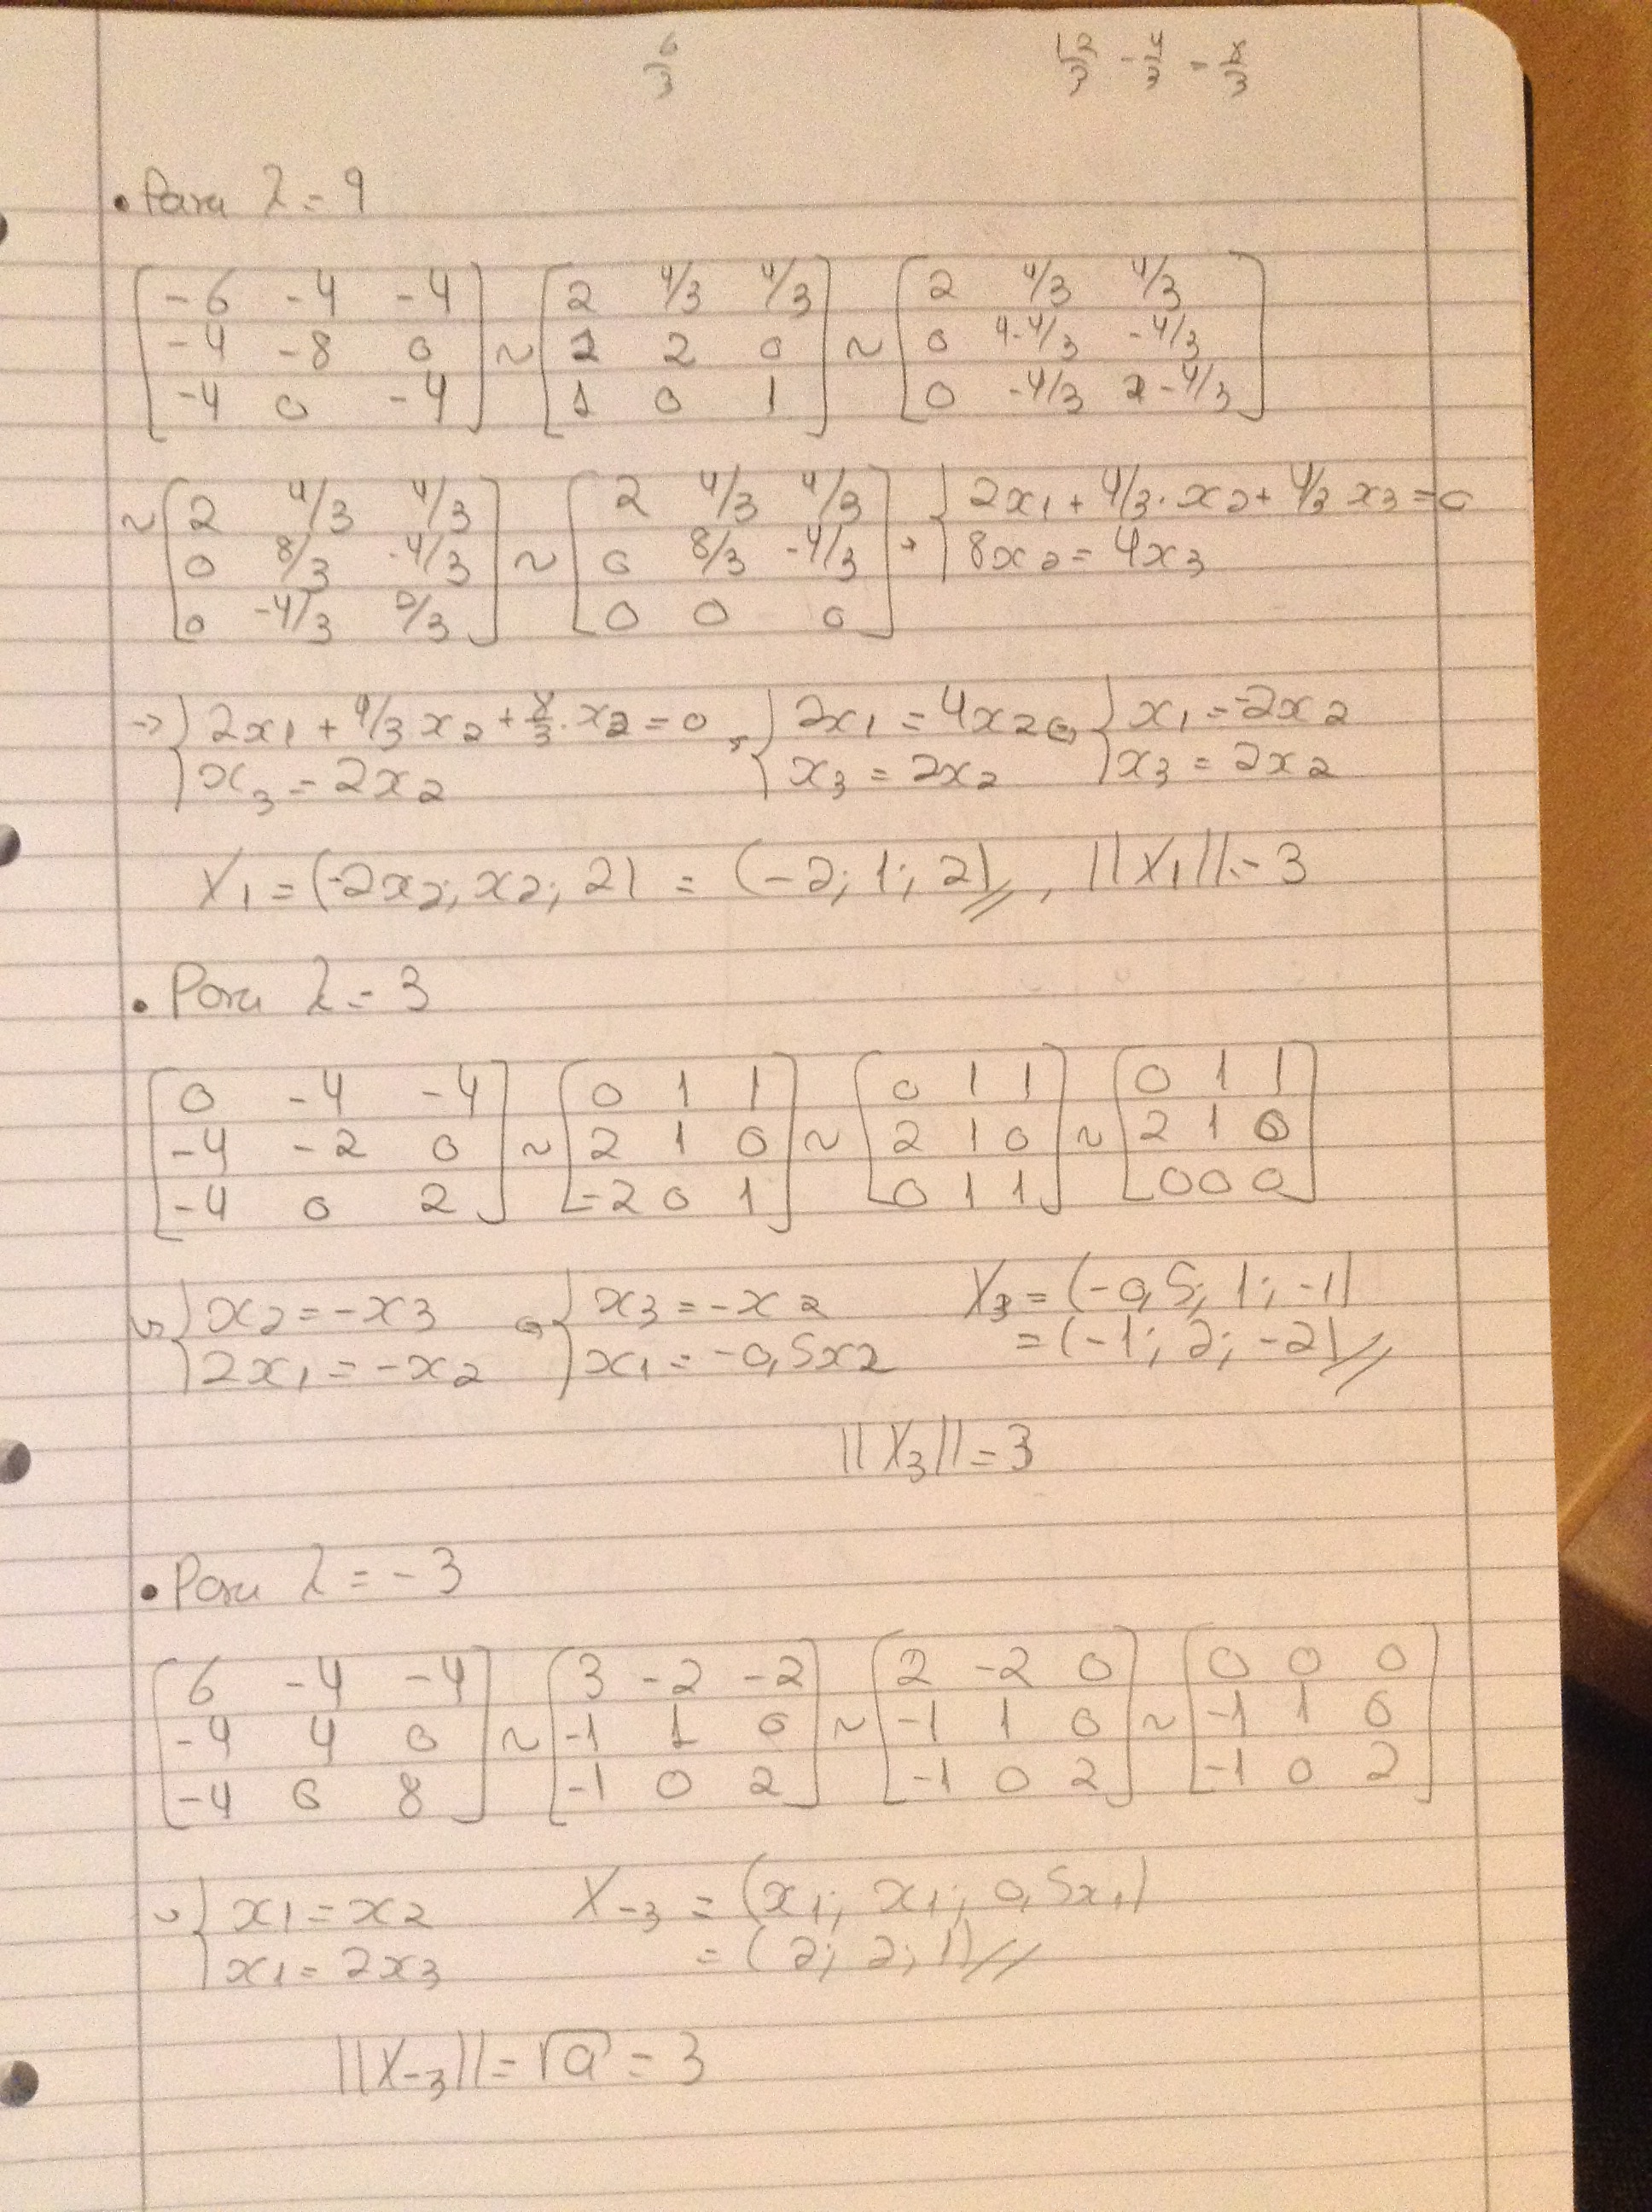 6/3 12/3 - 4/3 = 8/3
• Para λ = 9
[-6 -4 -4; -4 -8 0; -4 0 -4] ~ [2 4/3 4/3; 2 2 0; 1 0 1] ~ [2 4/3 4/3; 0 4-4/3 -4/3; 0 -4/3 2-4/3]
~ [2 4/3 4/3; 0 8/3 -4/3; 0 -4/3 2/3] ~ [2 4/3 4/3; 0 8/3 -4/3; 0 0 0] → { 2x1 + 4/3 · x2 + 4/3 x3 = 0; 8x2 = 4x3
→ { 2x1 + 4/3 x2 + 8/3 · x2 = 0; x3 = 2x2 → { 2x1 = 4x2; x3 = 2x2 → { x1 = -2x2; x3 = 2x2
X1 = (-2x2; x2; 2) = (-2; 1; 2)//, ||X1|| = 3
• Para λ = 3
[0 -4 -4; -4 -2 0; -4 0 2] ~ [0 1 1; 2 1 0; -2 0 1] ~ [0 1 1; 2 1 0; 0 1 1] ~ [0 1 1; 2 1 0; 0 0 0]
→ { x2 = -x3; 2x1 = -x2 → { x3 = -x2; x1 = -0,5x2 X3 = (-0,5; 1; -1)
= (-1; 2; -2)//
||X3|| = 3
• Para λ = -3
[6 -4 -4; -4 4 0; -4 0 8] ~ [3 -2 -2; -1 1 0; -1 0 2] ~ [2 -2 0; -1 1 0; -1 0 2] ~ [0 0 0; -1 1 0; -1 0 2]
→ { x1 = x2; x1 = 2x3 X-3 = (x1; x1; 0,5x1)
= (2; 2; 1)//
||X-3|| = √9 = 3